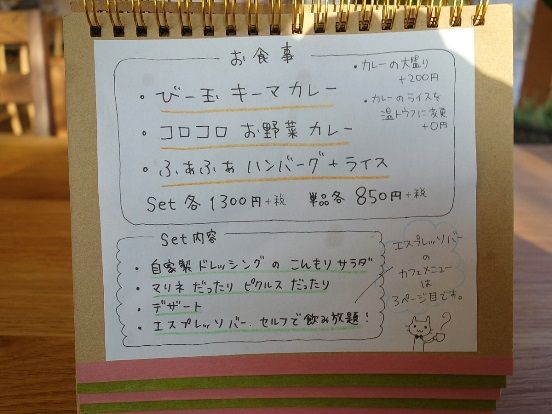 お食事
・びー玉 キーマカレー
・コロコロ お野菜 カレー
・ふぁふぁ ハンバーグ+ライス
Set 各 1300円+税 単品各 850円+税
・カレーの大盛り
+200円
・カレーのライスを
温トウフに変更
+0円
Set 内容
・自家製 ドレッシングの こんもり サラダ
・マリネ だったり ピクルス だったり
・デザート
・エスプレッソバー、セルフで飲み放題!
エスプレッソバー
の
カフェメニュー
は
3ページ目です。